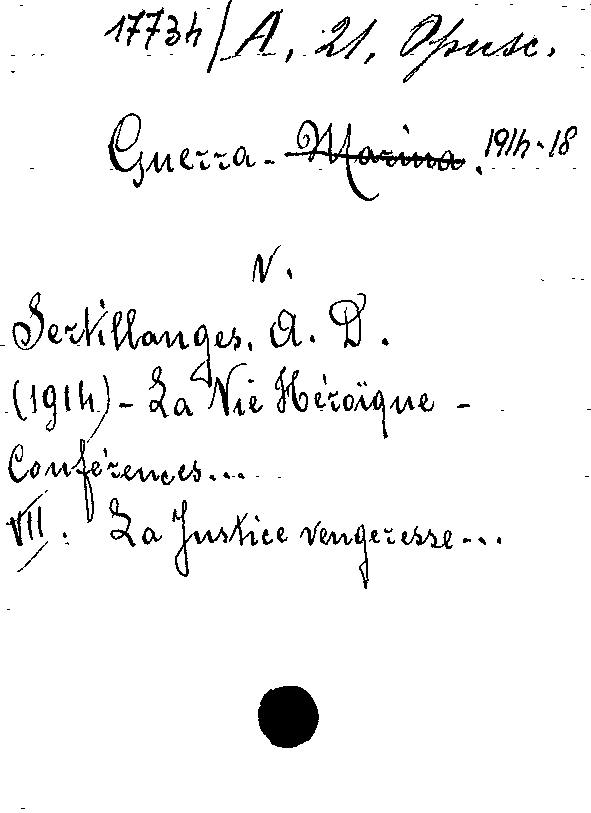 17734/A, 21, Opusc.
Guerra - Marina. 1914-18
V.
Sertillanges. A. D.
(1914) - La Vie Héroïque -
Conférences...
VII. La Justice vengeresse...